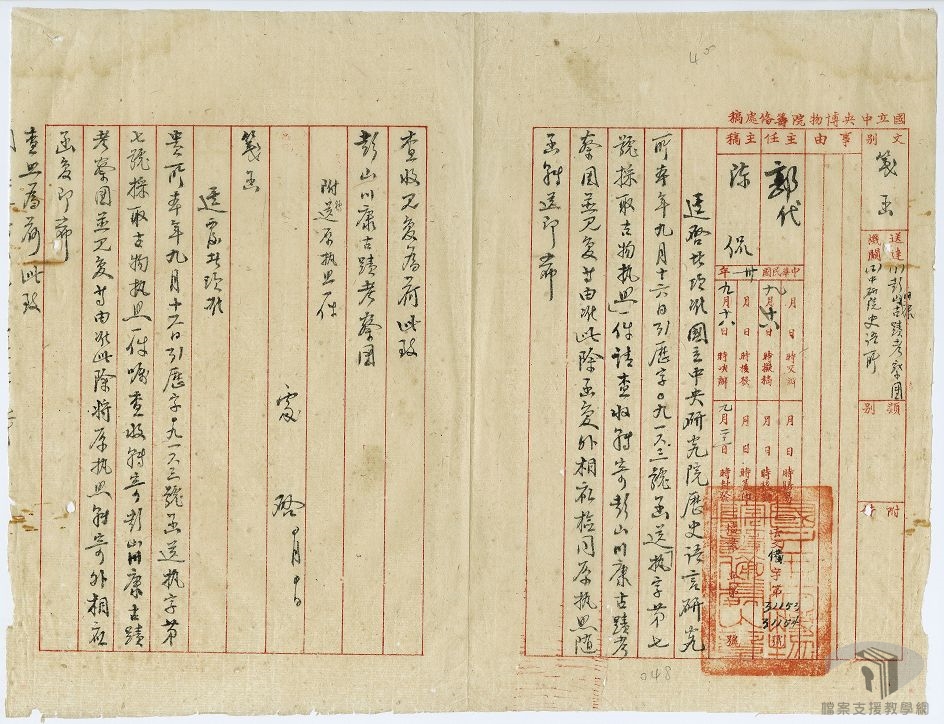 40
國立中央博物院籌備處稿
文別
事由
主任
主稿
箋函
送達機關
(1)彭山古蹟考察團
(2)中研院史語所
類別
附件
郭代
陳侃
中華民國卅一年
九月十六日
時擬稿
九月十八日
月日時交辦
月日時核發
九月二二日
時封發
發文備字第31153
31154號
檔案
逕啓者頃准國立中央研究院歷史語言研究
所本年九月十六日引歷字〇九一六三號函送執字第七
號採取古物執照一件請查收轉寄彭山川康古蹟考
察團並見復等由准此除函復外相應檢同原執照隨
函轉送即希
查收見復為荷此致
彭山川康古蹟考察團
附送原執照一件
處啓 月 日
箋函
逕復者頃准
貴所本年九月十六日引歷字〇九一六三號函送執字第
七號採取古物執照一件囑查收轉寄彭山川康古蹟
考察團並見復等由准此除將原執照轉寄外相應
函復即希
查照為荷此致
048
檔案支援教學網